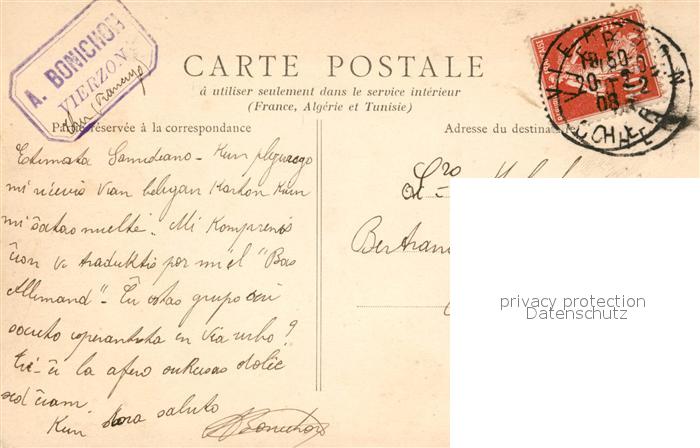 A. BONICHON
VIERZON
CARTE POSTALE
à utiliser seulement dans le service intérieur
(France, Algérie et Tunisie)
Partie réservée à la correspondance
Adresse du destinataire
VIERZON
20-2
08
CHER
Estimata Samideano - Kun plezurego
mi ricevis vian belegan Karton Kiun
mi ŝatas multe. Mi Komprenis
ĉion
traduktis por mi el "Bas
Allemand" - Ĉu estas grupo aŭ
societo esperantista en via urbo?
Tie-ĉi la afero sukcesas
sed ĉiam.
Kun Kora saluto
Bonichon
Sro
Bertran
privacy protection
Datenschutz